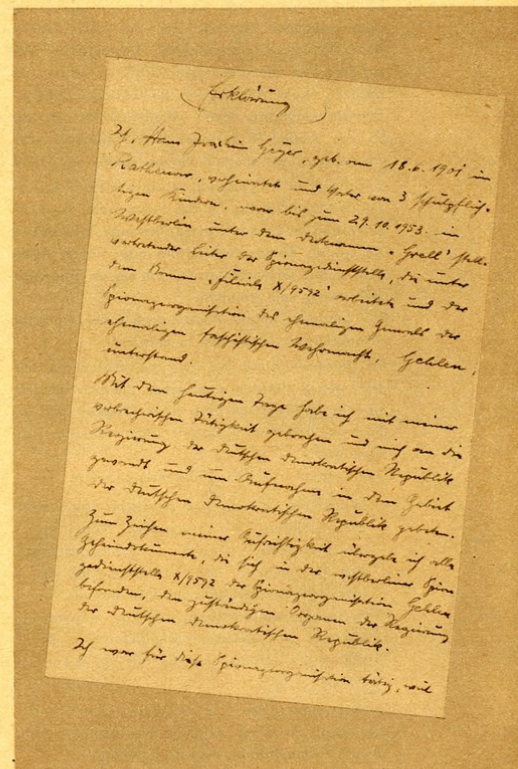 Erklärung
Ich, Hans Joachim Geyer, geb. am 18.6.1901 in
Rathenow, verheiratet und Vater von 3 schulpflich-
tigen Kindern, war bis zum 29.10.1953 in
Westberlin unter dem Decknamen "Grell" stell-
vertretender Leiter der Spionagedienststelle, die unter
dem Namen "Filiale X/9592" arbeitete und der
Spionageorganisation des ehemaligen Generals der
ehemaligen faschistischen Wehrmacht, Gehlen,
unterstand.
Mit dem heutigen Tage habe ich mit meiner
verbrecherischen Tätigkeit gebrochen und mich an die
Regierung der Deutschen Demokratischen Republik
gewandt und um Aufnahme in dem Gebiet
der Deutschen Demokratischen Republik gebeten.
Zum Zeichen meiner Aufrichtigkeit übergebe ich alle
Geheimdokumente, die sich in der westberliner Spio
gedienststelle X/9592 der Spionageorganisation Gehlen
befanden, den zuständigen Organen der Regierung
der Deutschen Demokratischen Republik.
Ich war für diese Spionageorganisation tätig, weil